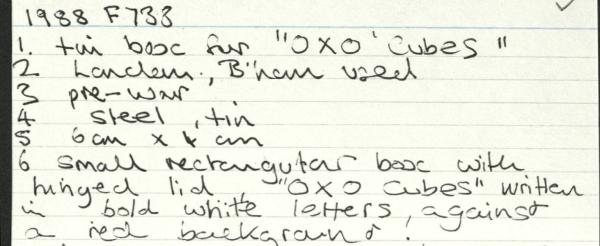 1988 F733
1. tin box for "OXO' Cubes"
2 London, B'ham used
3 pre-war
4 steel, tin
5 6cm x 4 cm
6 small rectangular box with
hinged lid, "OXO Cubes" written
in bold white letters, against
a red background.